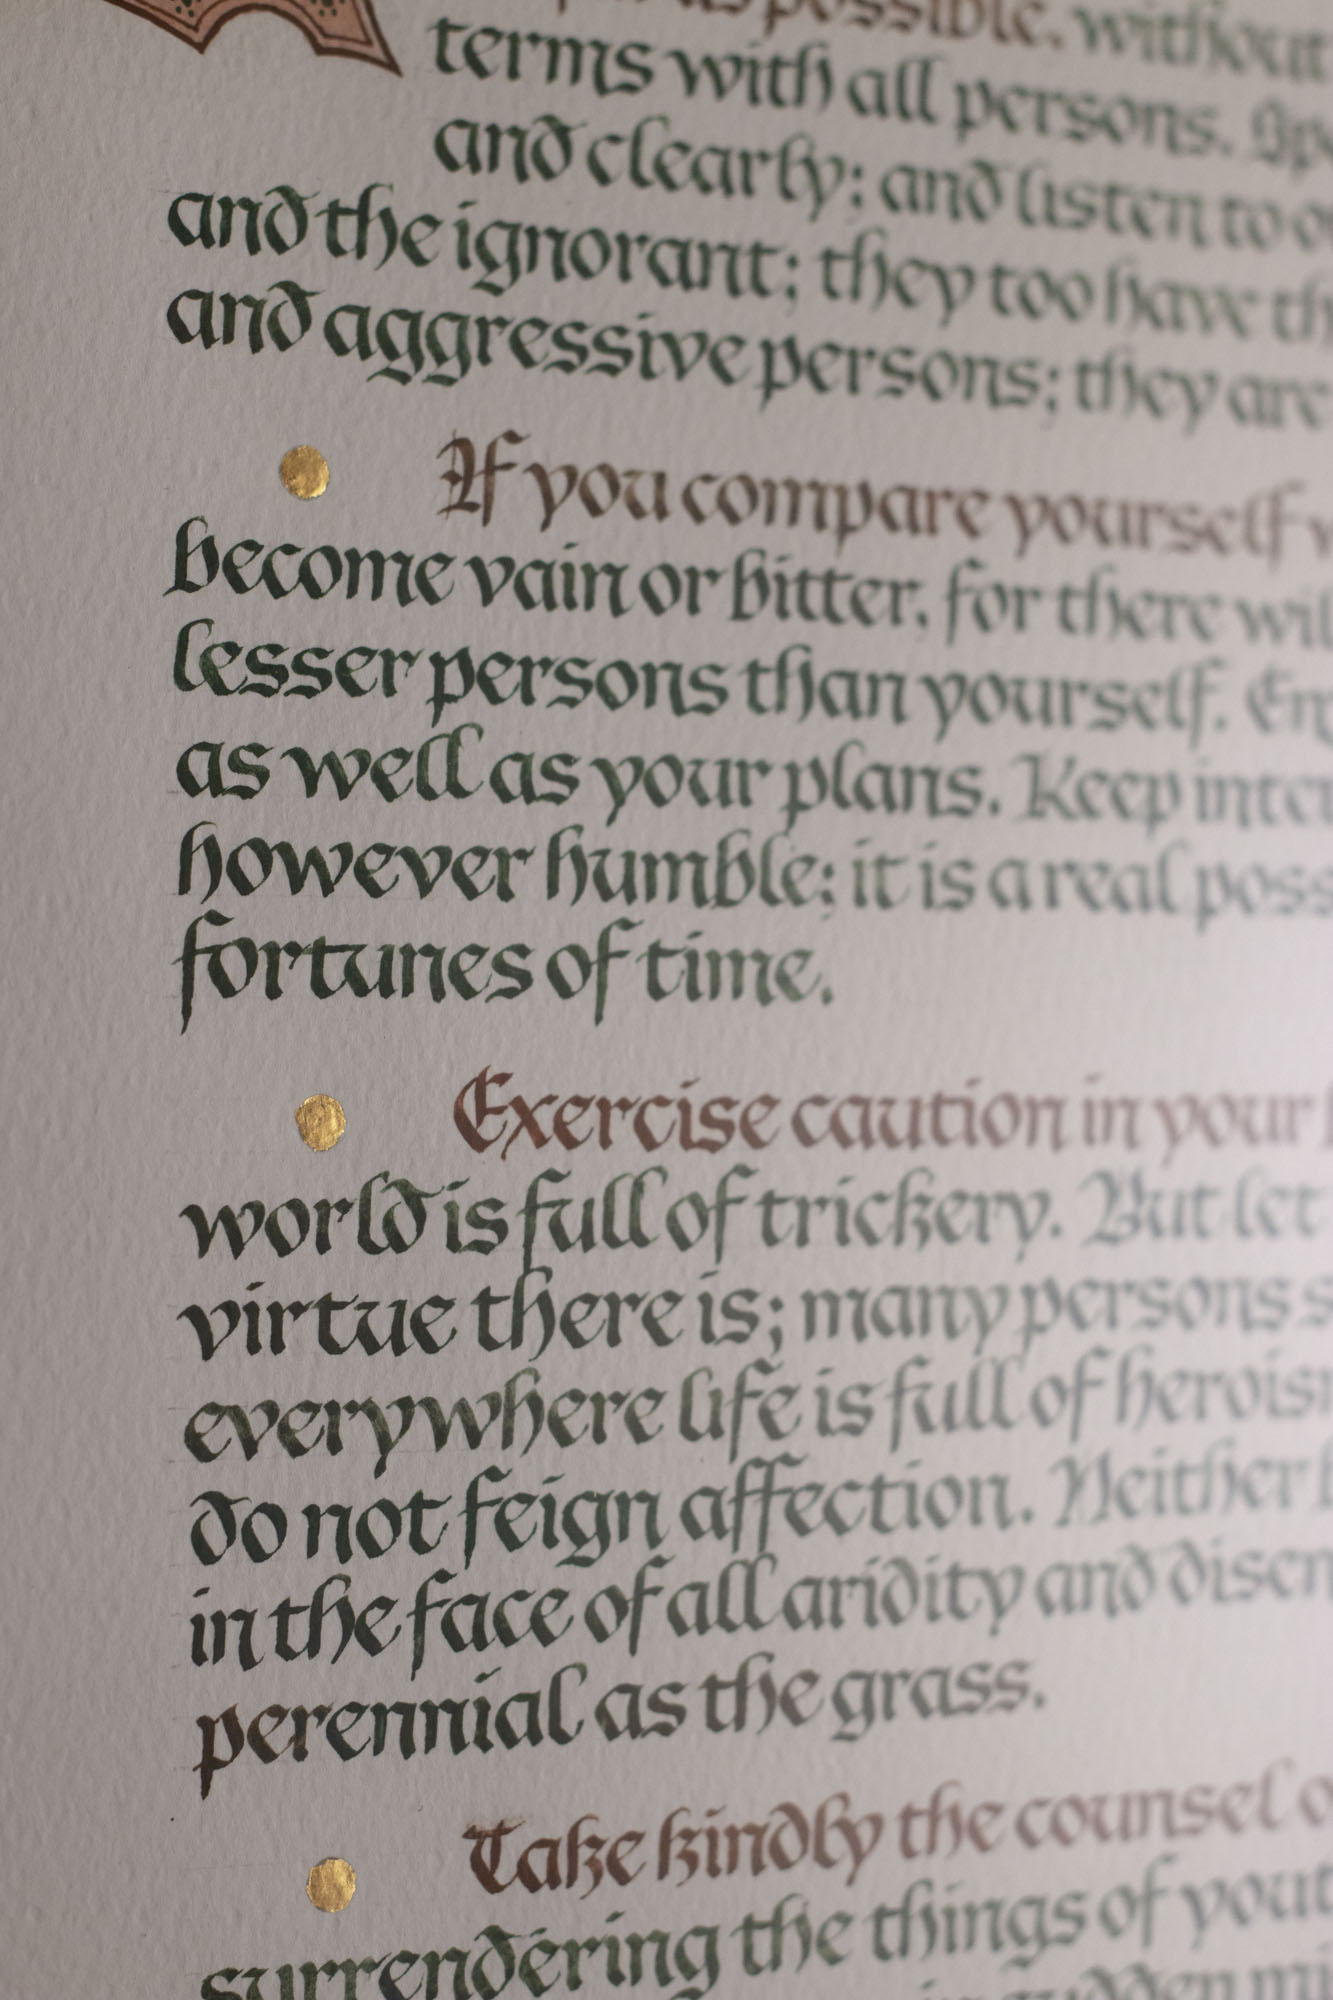 as possible, without
terms with all persons.
and clearly; and listen to
and the ignorant; they too have
and aggressive persons; they are
If you compare yourself
become vain or bitter, for there
lesser persons than yourself.
as well as your plans. Keep
however humble; it is a real
fortunes of time.
Exercise caution in your
world is full of trickery. But let
virtue there is; many persons
everywhere life is full of
do not feign affection. Neither
in the face of all aridity and
perennial as the grass.
Take kindly the counsel
surrendering the things of
in sudden